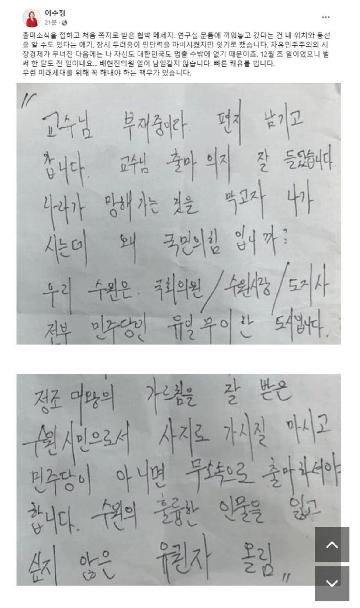 이수정
21분
출마소식을 접하고 처음 쪽지로 받은 협박 메세지. 연구실 문틈에 끼워놓고 갔다는 건 내 위치와 동선
을 알 수도 있다는 얘기. 잠시 두려움이 판단력을 마비시켰지만 잊기로 했습니다. 자유민주주의와 시
장경제가 무너진 다음에는 나 자신도 대한민국도 멈출 수밖에 없기 때문이죠. 12월 초 일이었으니 벌
써 한 달도 전 일이네요... 배현진의원 일이 남일같지 않습니다. 빠른 쾌유를 빕니다.
우린 미래세대를 위해 꼭 해내야 하는 책무가 있습니다.
"
교수님 부재중이라 편지 남기고
갑니다. 교수님 출마 의지 잘 들었습니다
나라가 망해 가는 것을 막고자 나가
시는데 왜 국민의힘 입니까?
우리 수원은 국회의원/수원시장/도지사
전부 민주당인 유일무이한 도시입니다.
정조 대왕의 가르침을 잘 받은
수원시민으로서 사지로 가시질 마시고
민주당이 아니면 무소속으로 출마하셔야
합니다. 수원의 훌륭한 인물을 잃고
싶지 않은 유권자 올림 "